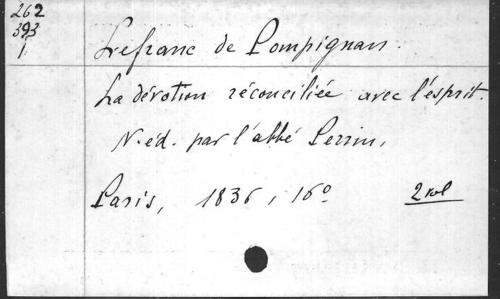 262
393
1
Lefranc de Pompignan.
La dévotion réconciliée avec l'esprit.
N. éd. par l'abbé Perrin,
Paris, 1836, 16º 2 vol